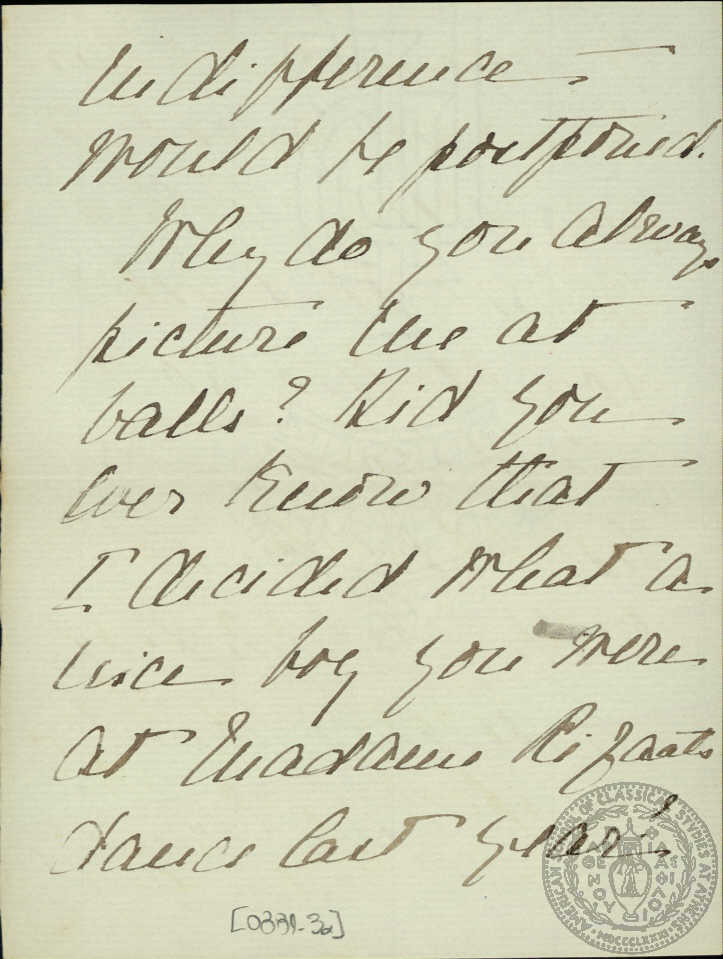 indifference
would be postponed.
Why do you always
picture me at
balls? Did you
ever know that
I decided what a
nice boy you were
at Madame
dance last year?
[0331-3a]
AMERICAN SCHOOL OF CLASSICAL STUDIES AT ATHENS
ΠΑΡΘΕΝΟΥ ΦΙΑΣ ΦΙΛΟΙ
MDCCCLXXXI